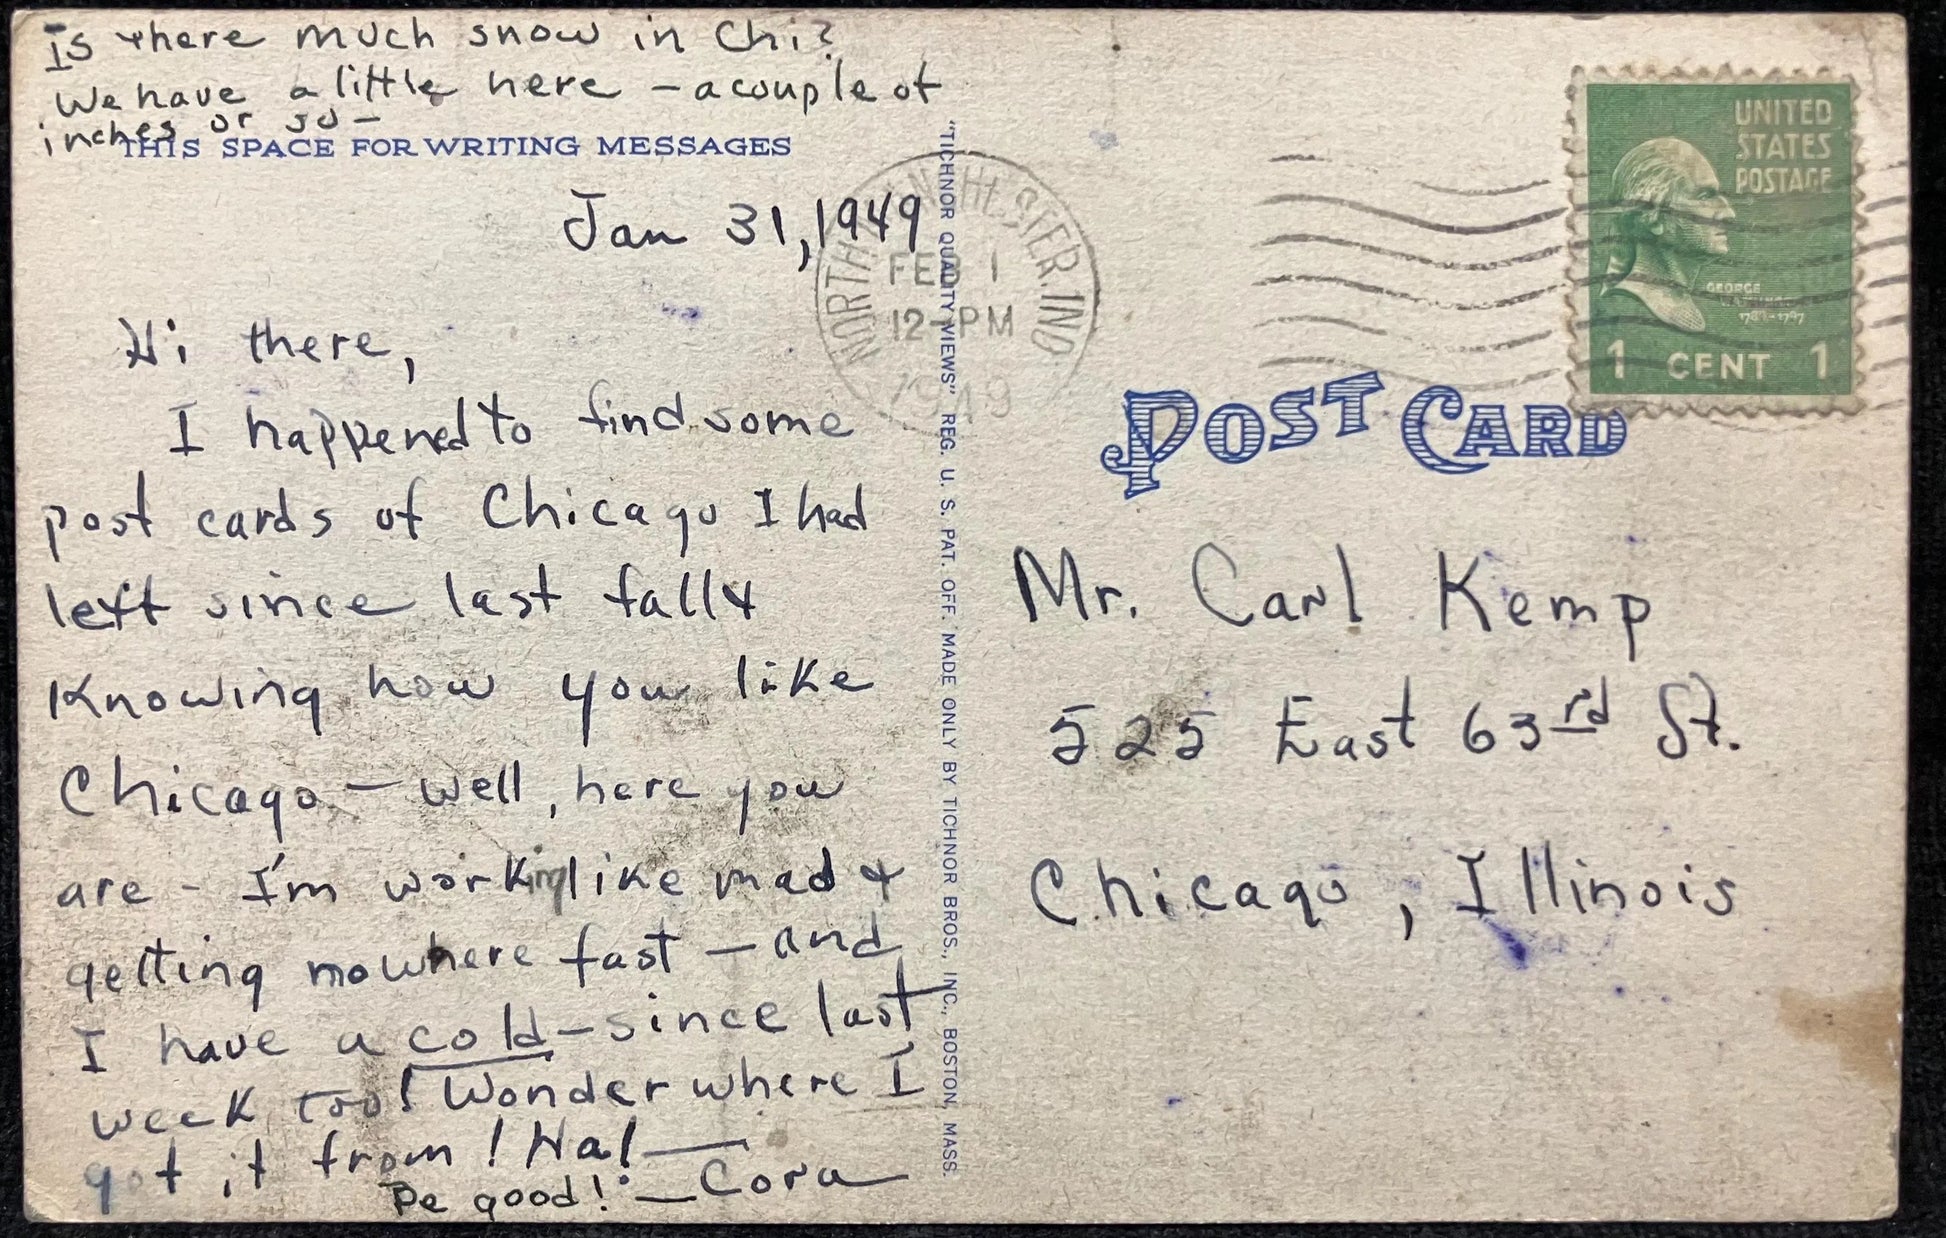 Is there much snow in Chi?
We have a little here – a couple of
inches or so –
THIS SPACE FOR WRITING MESSAGES
Jan 31, 1949
Hi there,
I happened to find some
post cards of Chicago I had
left since last fall &
Knowing how you like
Chicago – well, here you
are - I'm working like mad &
getting nowhere fast – and
I have a cold – since last
week too! Wonder where I
got it from! Ha! —
Be good! — Cora
"TICHNOR QUALITY VIEWS" REG. U. S. PAT. OFF. MADE ONLY BY TICHNOR BROS., INC., BOSTON, MASS.
NORTH MANCHESTER, IND.
FEB 1
12 - PM
1949
UNITED
STATES
POSTAGE
GEORGE
WASHINGTON
1789-1797
1 CENT 1
POST CARD
Mr. Carl Kemp
525 East 63rd St.
Chicago, Illinois